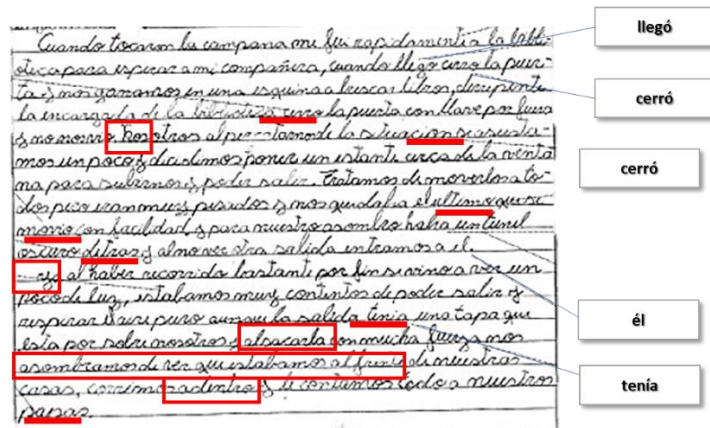 Cuando tocaron la campana me fui rapidamente a la bibli-
oteca para esperar a mi compañera, cuando llego cerro la puer-
ta y nos ganamos en una esquina a buscar libros, derrepente
la encargada de la biblioteca cerro la puerta con llave por fuera
y no nos vio. Nosotros al percatarnos de la situacion se asusta-
mos un poco y dicidimos poner un estante cerca de la venta
na para subirnos y poder salir. Tratamos de moverlos a to-
dos pero eran muy pesados y nos quedaba el ultimo que se
movio con facilidad, y para nuestro asombro habia un tunel
oscuro detras y al no ver otra salida entramos a el.
y al haber recorrido bastante por fin se vino a ver un
poco de luz, estabamos muy contentos de poder salir y
respirar aire puro aunque la salida tenia una tapa que
esta por sobre nosotros y alsacarla con mucha fuerza nos
asombramos de ver que estabamos al frente de nuestras
casas, corrimos adentro y le contamos todo a nuestros
papas.
llegó
cerró
cerró
él
tenía